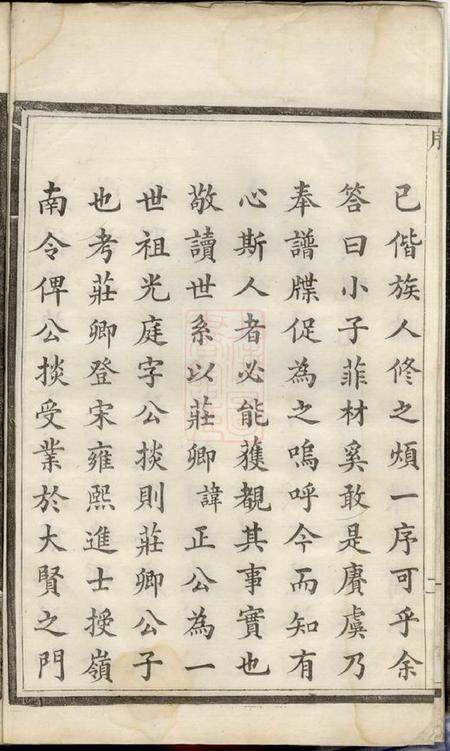 序
已偕族人修之煩一序可乎余
答曰小子菲材奚敢是賡虞乃
奉譜牒促為之嗚呼今而知有
心斯人者必能獲覩其事實也
敬讀世系以莊卿諱正公為一
世祖光庭字公掞則莊卿公子
也考莊卿登宋雍熙進士授嶺
南令俾公掞受業於大賢之門